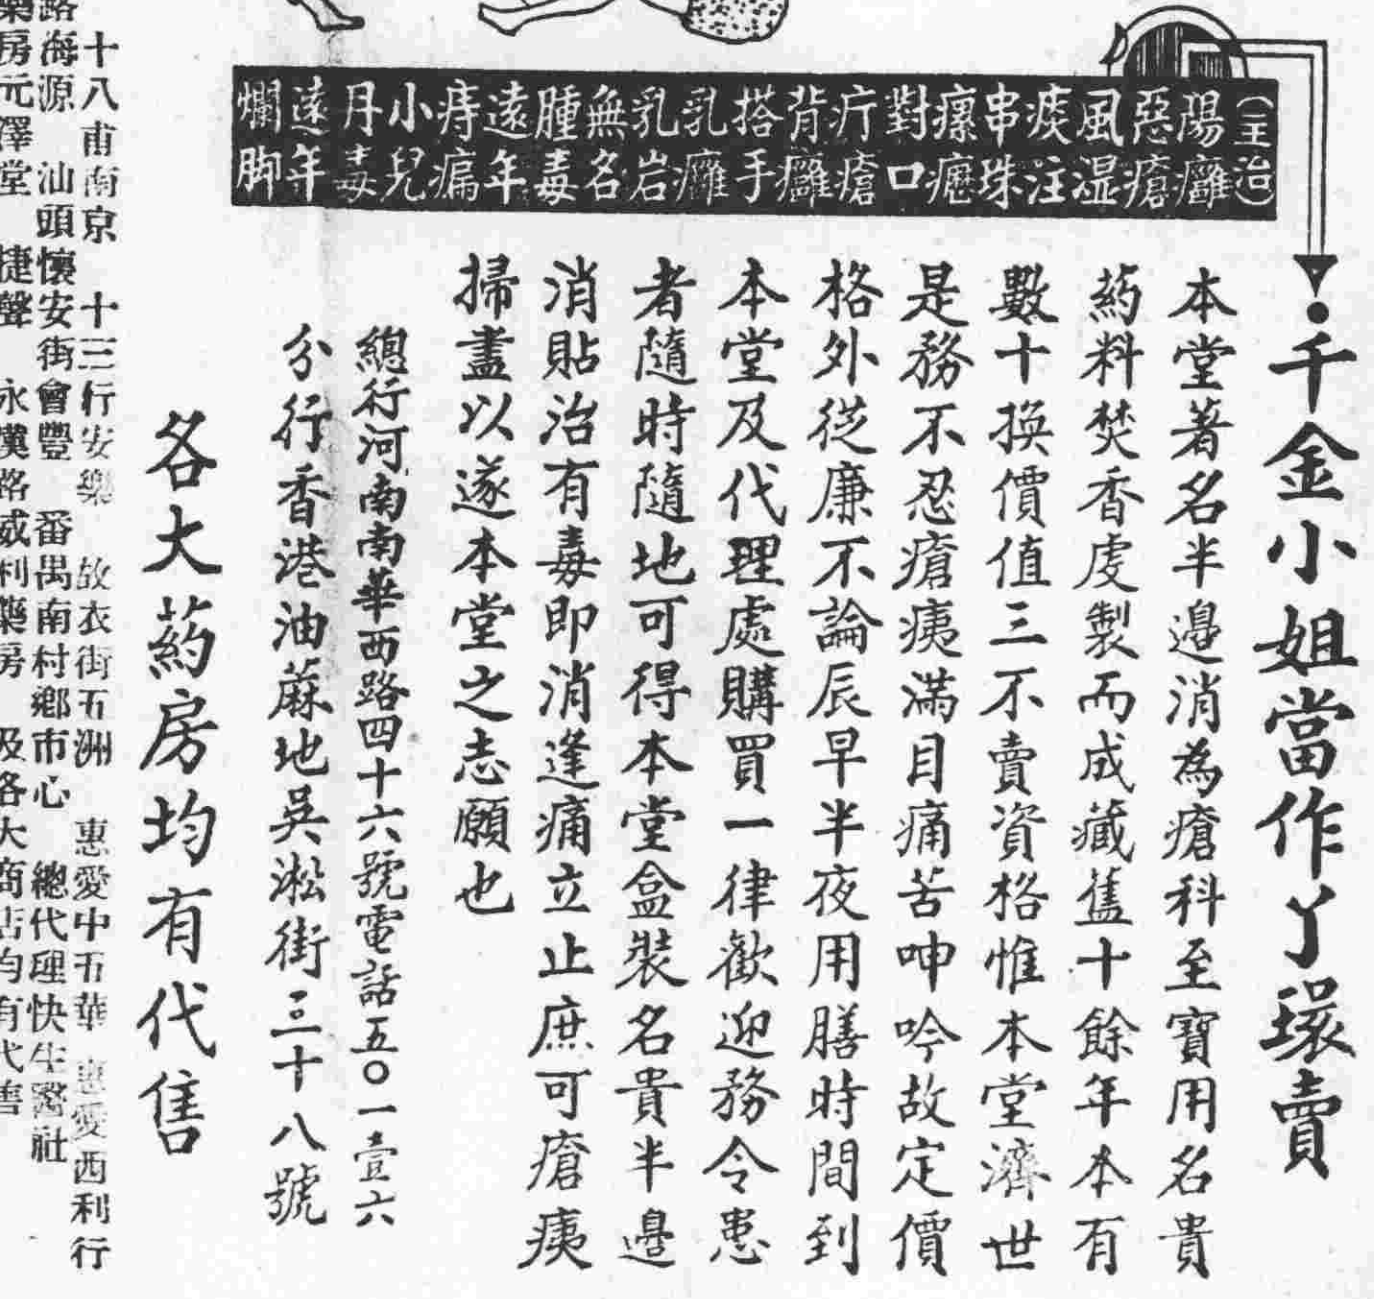 （主治）
陽癰
惡瘡
風湿
痰注
串珠
瘰癧
對口
疔瘡
背癰
搭手
乳癰
乳岩
無名
腫毒
遠年
痔瘺
小兒
丹毒
遠年
爛脚
千金小姐當作丫環賣
本堂著名半邊消為瘡科至寶用名貴
葯料焚香虔製而成藏舊十餘年本有
數十換價值三不賣資格惟本堂濟世
是務不忍瘡痍滿目痛苦呻吟故定價
格外從廉不論辰早半夜用膳時間到
本堂及代理處購買一律歡迎務令患
者隨時隨地可得本堂盒裝名貴半邊
消貼治有毒即消逢痛立止庶可瘡痍
掃盡以遂本堂之志願也
總行河南南華西路四十六號電話五〇一壹六
分行香港油蔴地吳淞街三十八號
各大葯房均有代售
十八甫南京　十三行安樂　故衣街五洲　惠愛中五華　惠愛西利行
路海源　汕頭懷安街會豐　番禺南村鄉市心　總代理快生醫社
藥房元澤堂　捷聲　永漢路威利藥房　及各大商店均有代售